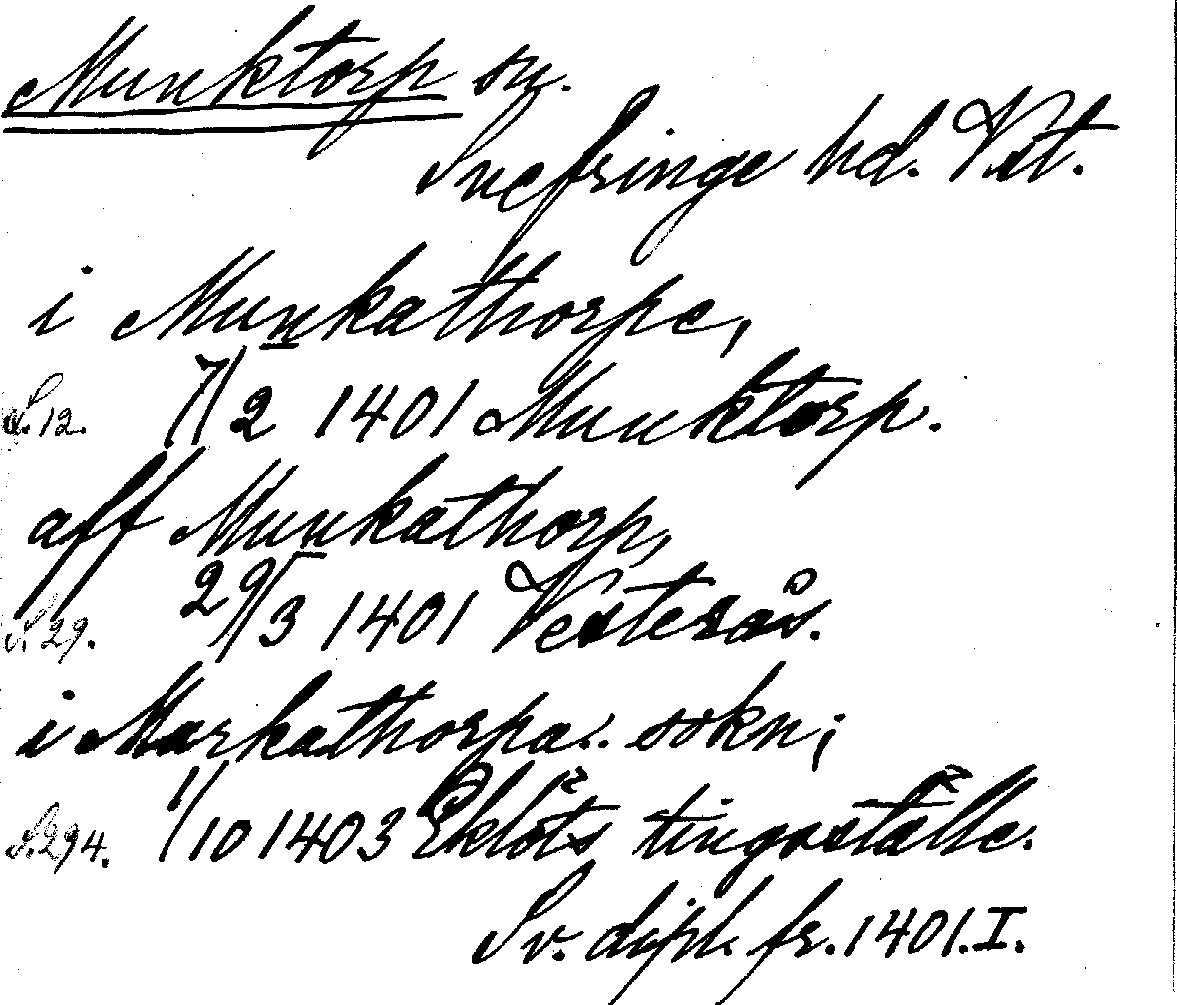 Munktorp sn.
Snefringe hd. Vst.
i Munkathorpe,
S. 12. 7/2 1401 Munktorp.
aff Munkathorp,
S. 29. 29/3 1401 Vesterås.
i Markathorpa.. sokn;
S. 294. 1/10 1403 Eklöts tingställe.
Sv. dipl. fr. 1401. I.